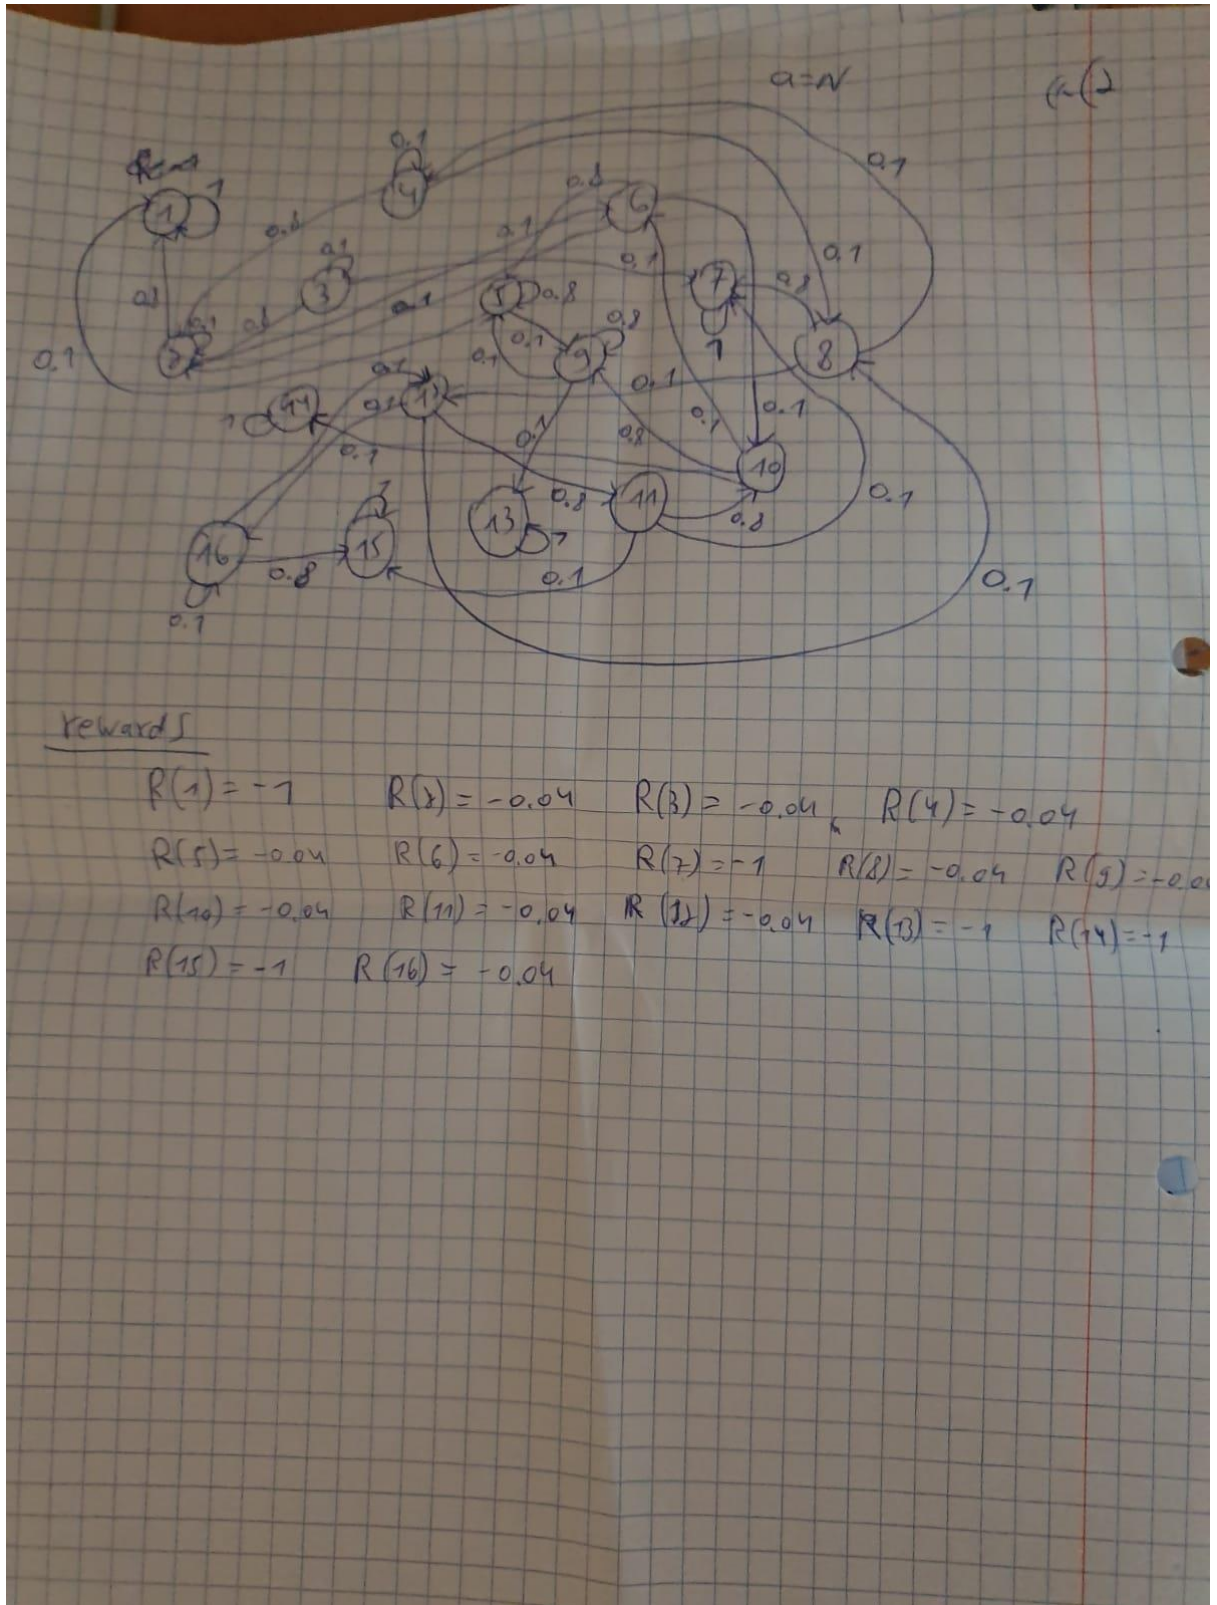 a=N
0.1
0.1
1
1
4
0.8
0.8
6
0.1
0.1
0.1
0.1
0.8
3
0.1
7
0.8
5
0.8
0.1
0.1
0.8
8
2
0.1
0.1
9
1
0.1
0.1
0.1
0.1
1
14
0.1
0.1
0.8
0.1
10
0.1
1
13
1
0.8
11
0.8
0.1
16
0.8
15
0.1
0.1
0.1
rewards
R(1) = -1 R(2) = -0.04 R(3) = -0.04 R(4) = -0.04
R(5) = -0.04 R(6) = -0.04 R(7) = -1 R(8) = -0.04 R(9) = -0.0
R(10) = -0.04 R(11) = -0.04 R(12) = -0.04 R(13) = -1 R(14) = -1
R(15) = -1 R(16) = -0.04